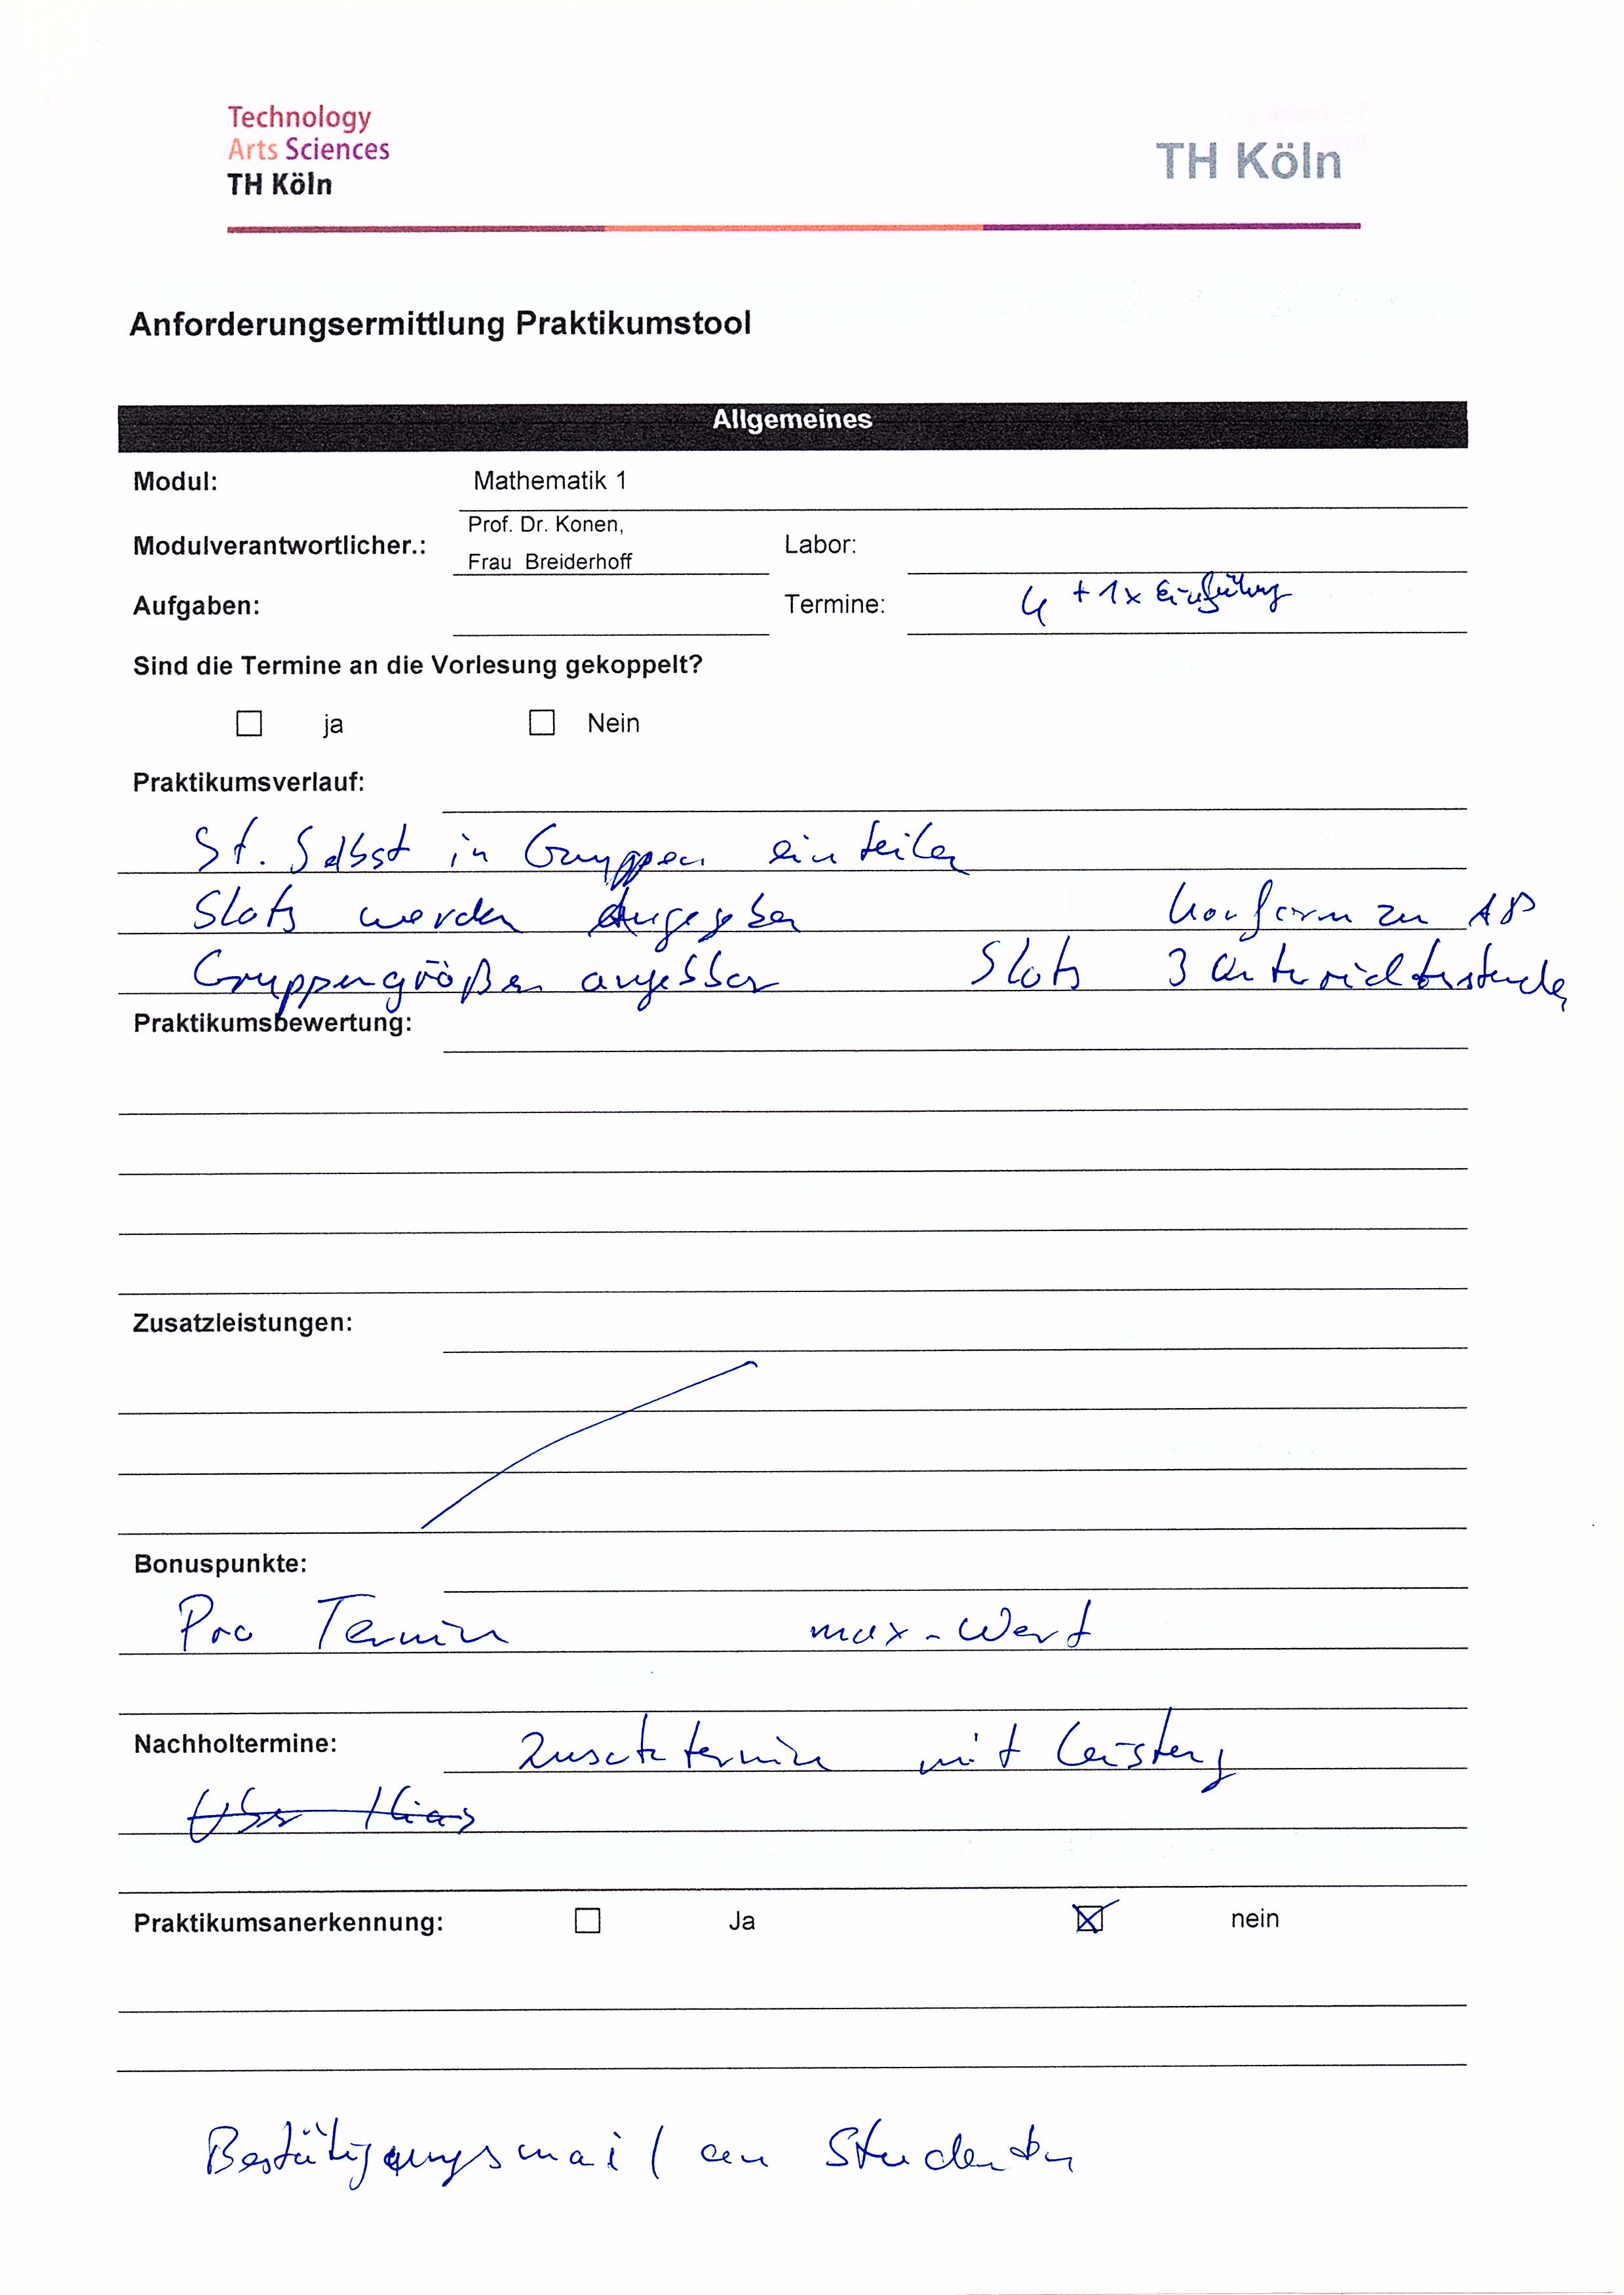 Technology
Arts Sciences
TH Köln
TH Köln
Anforderungsermittlung Praktikumstool
Allgemeines
Modul: Mathematik 1
Prof. Dr. Konen,
Modulverantwortlicher.: Frau Breiderhoff Labor:
Aufgaben: Termine: 4 + 1x Einführung
Sind die Termine an die Vorlesung gekoppelt?
ja Nein
Praktikumsverlauf:
St. Selbst in Gruppen einteilen
Slots werden angegeben konform zu AP
Gruppengrößen angebbar Slots 3 Unterrichtsstunden
Praktikumsbewertung:
Zusatzleistungen:
Bonuspunkte:
Pro Termin max-Wert
Nachholtermine: Zusatztermin mit Leistung
Über Ilias
Praktikumsanerkennung: Ja nein
Bestätigungsmail an Studenten